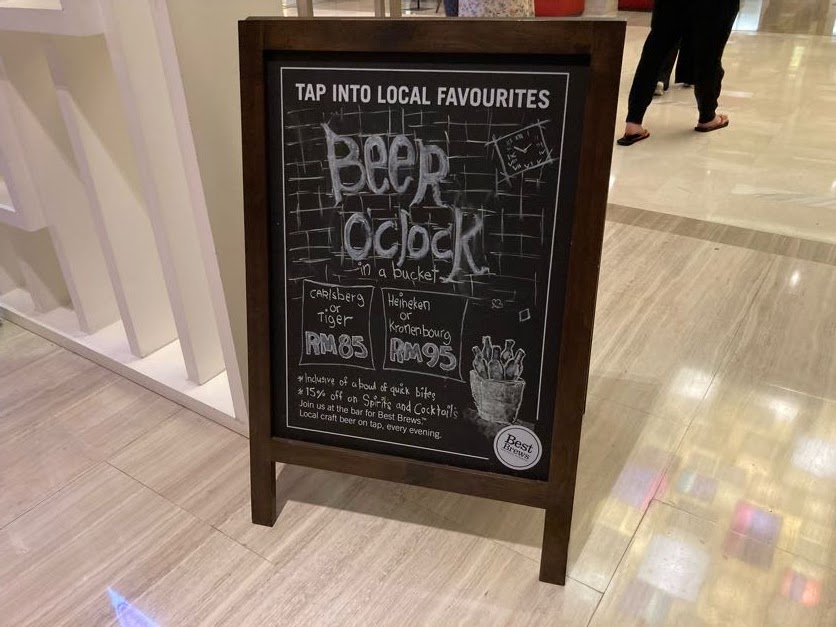 TAP INTO LOCAL FAVOURITES
BEER
O'clock
in a bucket
CARLSBERG
or
TIGER
RM85
Heineken
or
Kronenbourg
RM95
*Inclusive of a bowl of quick bites
*15% off on Spirits and Cocktails
Join us at the bar for Best Brews.™
Local craft beer on tap, every evening.
Best
Brews